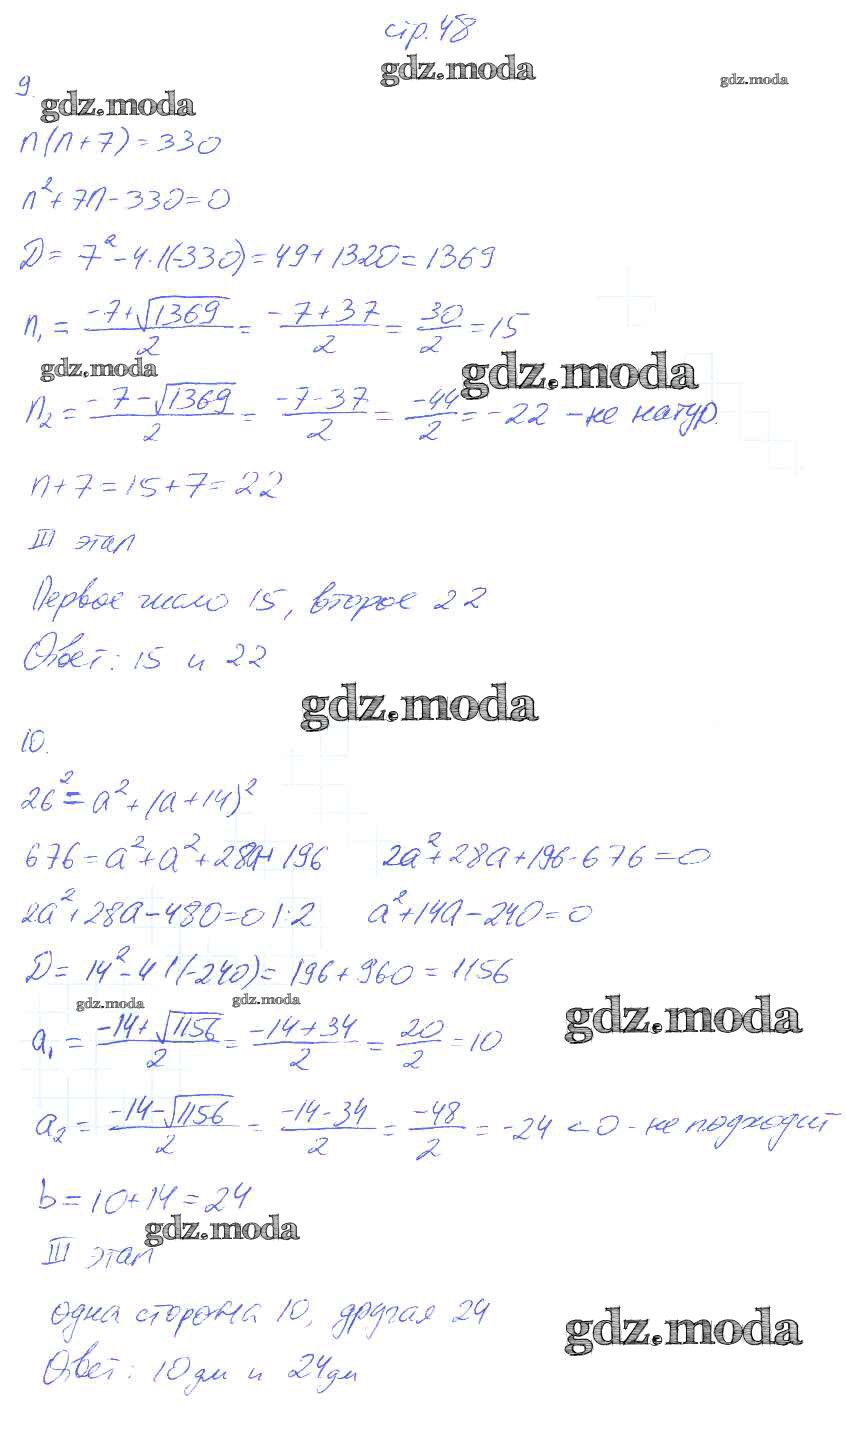 стр. 48
gdz.moda
gdz.moda
9.
gdz.moda
n(n+7)=330
n²+7n-330=0
D= 7²-4·1(-330)=49+1320=1369
n₁ = (-7+√1369)/2 = (-7+37)/2 = 30/2 =15
gdz.moda
gdz.moda
n₂ = (-7-√1369)/2 = (-7-37)/2 = -44/2 = -22 - не натур.
n+7=15+7=22
III этап
Первое число 15, второе 22
Ответ: 15 и 22
gdz.moda
10.
26²=a²+(a+14)²
676=a²+a²+28a+196 2a²+28a+196-676=0
2a²+28a-480=0 |:2 a²+14a-240=0
D= 14²-4·1(-240)= 196+960=1156
gdz.moda gdz.moda
gdz.moda
a₁ = (-14+√1156)/2 = (-14+34)/2 = 20/2 =10
a₂ = (-14-√1156)/2 = (-14-34)/2 = -48/2 = -24 <0 - не подходит
b=10+14=24
gdz.moda
III этап
одна сторона 10, другая 24
gdz.moda
Ответ: 10дм и 24дм